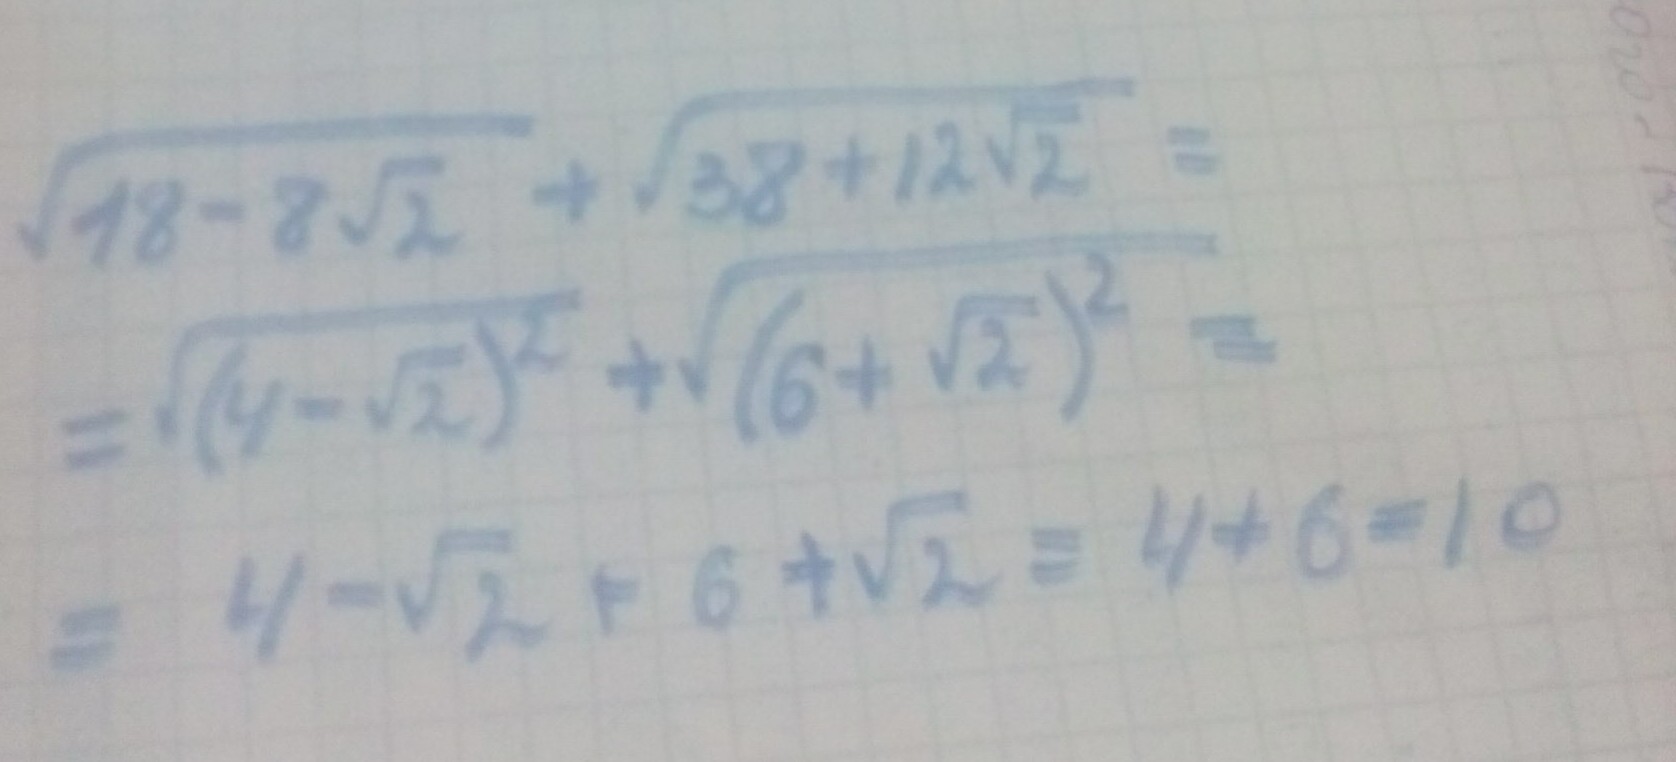 √(18-8√2) + √(38+12√2) =
= √((4-√2)²) + √((6+√2)²) =
= 4-√2 + 6 + √2 = 4+6=10